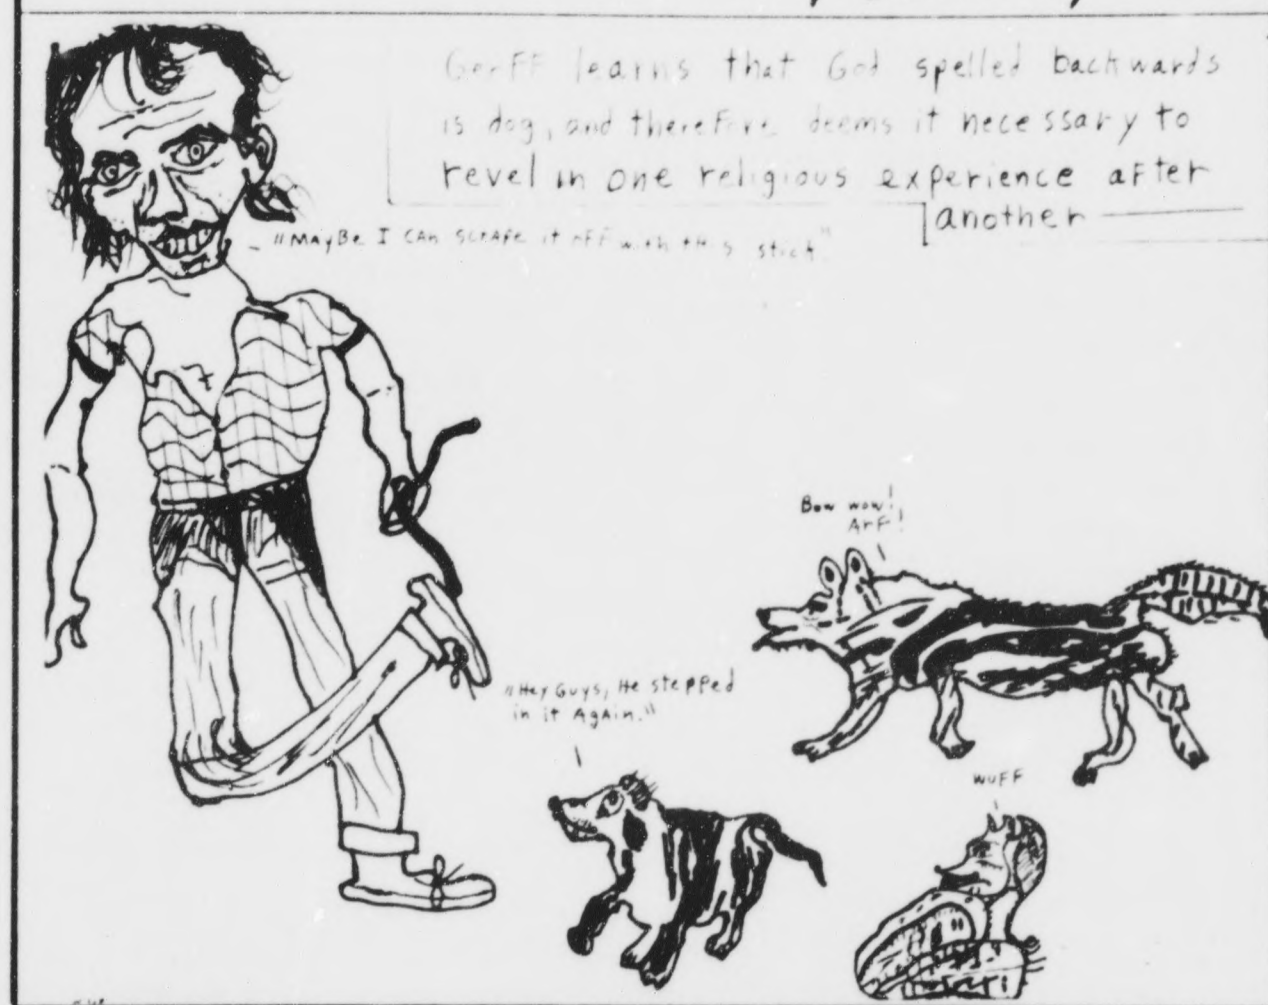 GerFF learns that God spelled backwards
is dog, and therefore deems it necessary to
revel in one religious experience after
another
"MAyBe I CAn scrApe it oFF with this stick."
Bow wow!
ArF!
"Hey Guys, He stepped
in it AgAin."
WUFF